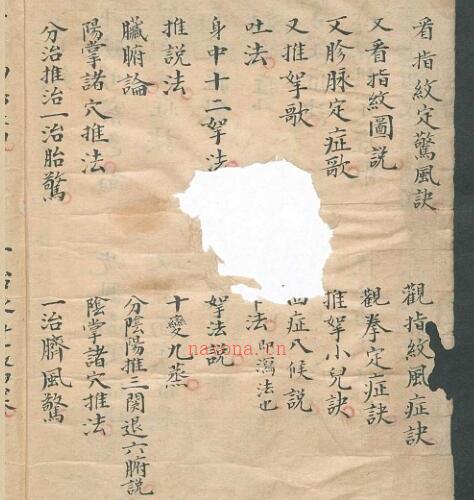 看指紋定驚風訣
觀指紋風症訣
又看指紋圖説
觀拳定症訣
又胗脉定症歌
推拏小兒訣
又推拏歌
症八候説
吐法
法即瀉法也
身中十二拏法
拏法説
推説法
十變九蒸
臟腑論
分陰陽推三関退六腑説
陽掌諸穴推法
陰掌諸穴推法
分治推治一治胎驚
一治臍風驚
nayona.cn